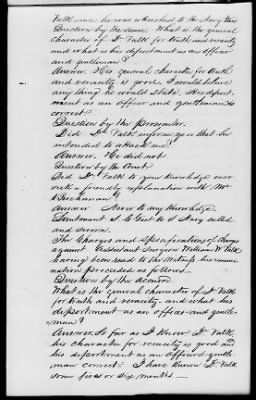 Valk since he was attached to the Navy Yard
Question by the same. What is the general
character of Dr Valk for truth and veracity
and what is his deportment as an officer
and gentleman?
Answer. His general character for truth
and veracity is good. I would believe
any thing he would state. His deport-
ment as an officer and gentleman is
correct.
Question by the prosecutor.
Did Dr Valk inform you that he
intended to attack me?
Answer. He did not
Question by the Court.
Did Dr Valk to your knowledge ever
seek a friendly explanation with Mr
Buchanan?
Answer Never to my knowledge.
Lieutenant S. Gist U S Navy called
and sworn.
The Charges and Specifications of Charges
against Assistant Surgeon William W. Valk
having been read to the Witness his exami-
nation proceeded as follows.
Question by the accused
What is the general character of Dr Valk
for truth and veracity and what his
deportment as an officer and gentle-
man?
Answer. So far as I know Dr Valk,
his character for veracity is good and
his deportment as an officer and gentle
man correct. I have known Dr Valk
some five or six months —